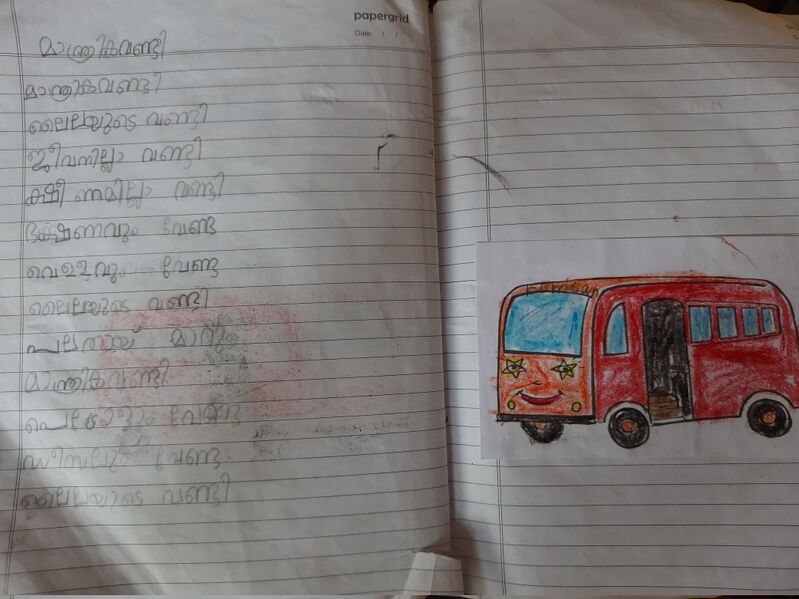 papergrid
Date: / /
മാന്ത്രികവണ്ടി
മാന്ത്രികവണ്ടി
ലൈലയുടെ വണ്ടി
ജീവനില്ലാ വണ്ടി
ക്ഷീണമില്ലാ വണ്ടി
ഭക്ഷണവും വേണ്ട
വെള്ളവും വേണ്ട
ലൈലയുടെ വണ്ടി
പലതായ് മാറും
മാന്ത്രികവണ്ടി
പെട്രോളും വേണ്ട
ഡീസലും വേണ്ട
ലൈലയുടെ വണ്ടി